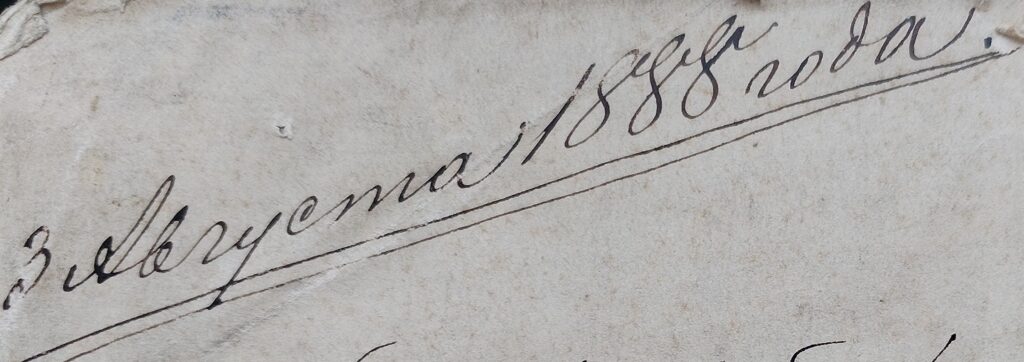 3 Августа 1888 года.